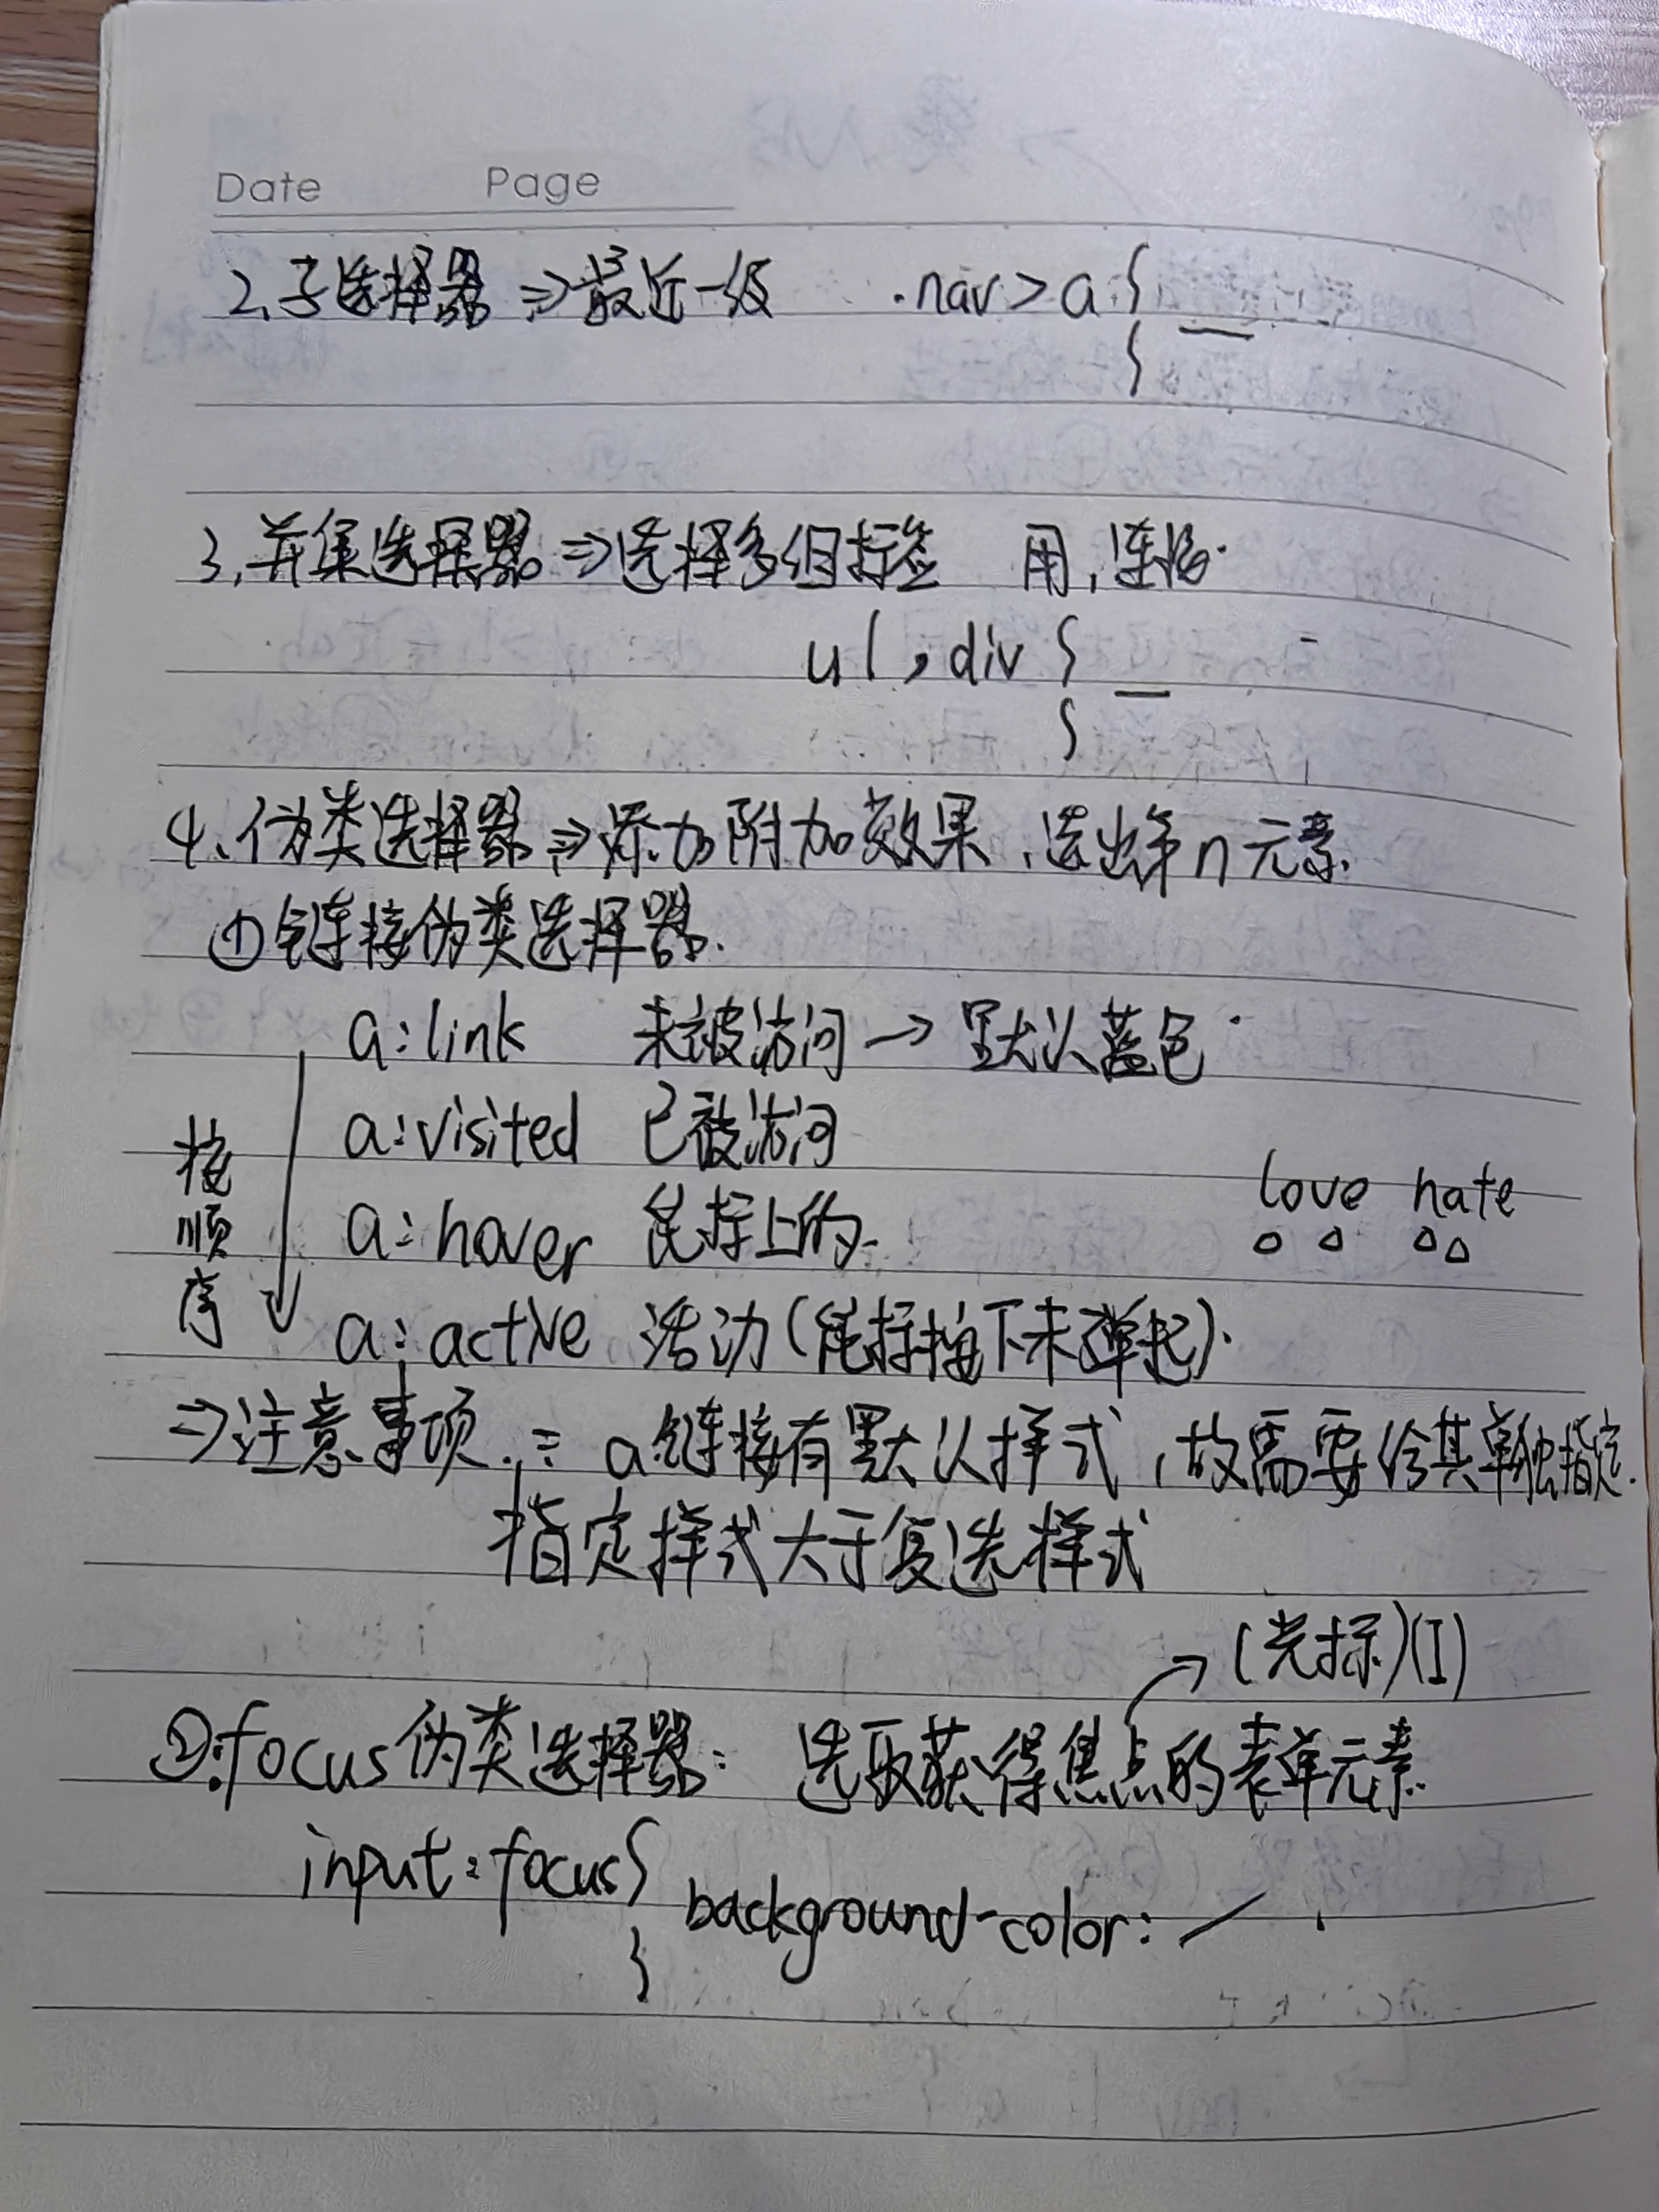 Date Page
2、子选择器 ⇒ 最近一级 .nav > a {
}
3、并集选择器 ⇒ 选择多组标签 用，连接.
ul , div {
}
4、伪类选择器 ⇒ 添加附加效果，选出第n元素.
① 链接伪类选择器.
a:link 未被访问 → 默认蓝色
a:visited 已被访问
按顺序
love hate
a:hover 鼠标上的.
a:active 活动(鼠标按下未弹起).
⇒ 注意事项：a链接有默认样式，故需要给其单独指定.
指定样式大于复选样式
(光标)(I)
② :focus伪类选择器：选取获得焦点的表单元素.
input:focus{
background-color:
}